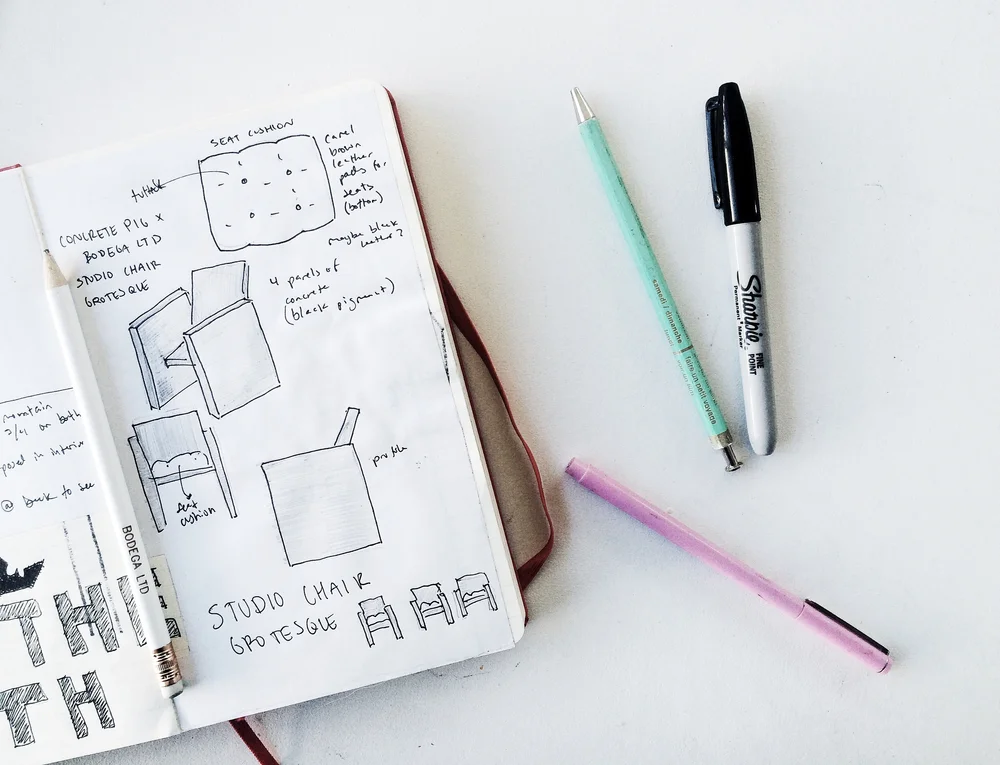 SEAT CUSHION
Camel
brown
leather
pads for
seats
(bottom)
maybe black
leather?
CONCRETE PIG X
BODEGA LTD
STUDIO CHAIR
GROTESQUE
4 panels of
concrete
(black pigment)
seat
cushion
profile
STUDIO CHAIR
GROTESQUE
mountain
3/4 or both
in interior
@ back to see
TH
TH
BODEGA LTD
samedi / dimanche
faire un petit voyage
Sharpie
Permanent Marker
FINE
POINT